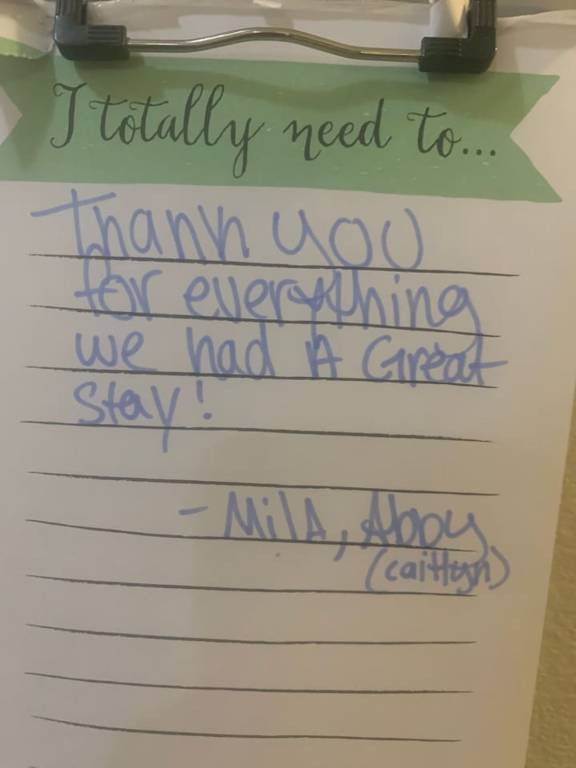 I totally need to...
Thank you
for everything
we had A Great
stay!
- MilA, Abby
(caitlyn)